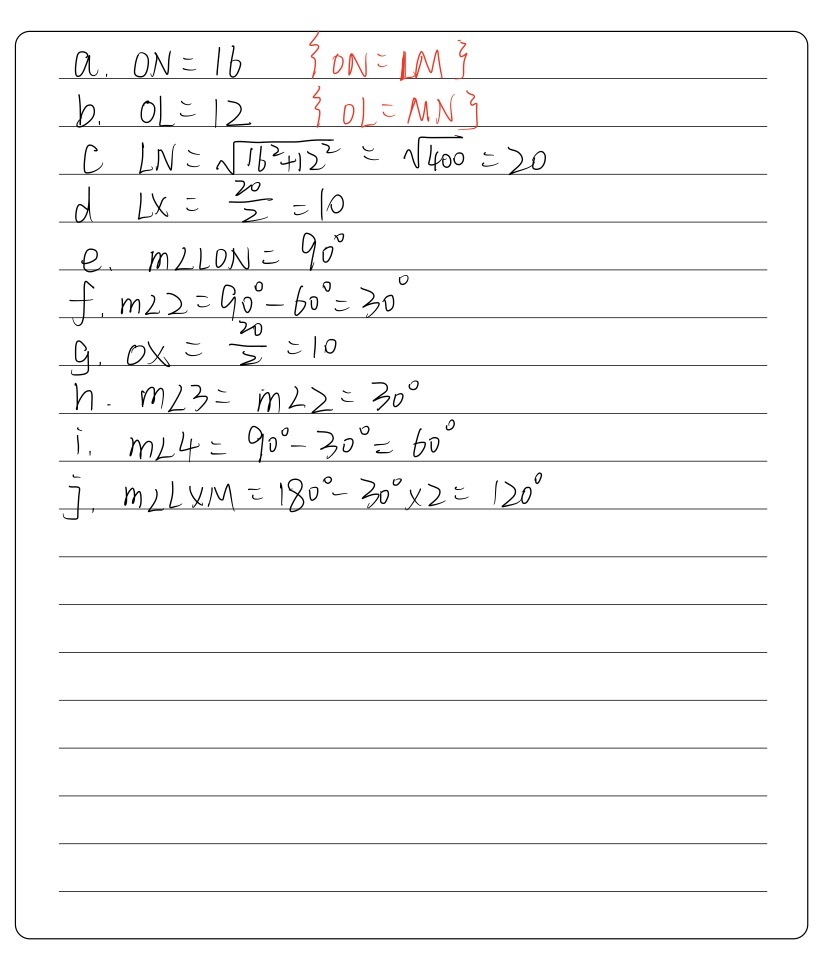 a. ON = 16 {ON = LM}
b. OL = 12 {OL = MN}
c LN = √(16²+12²) = √400 = 20
d LX = 20/2 = 10
e. m∠LON = 90°
f. m∠2 = 90° - 60° = 30°
g. OX = 20/2 = 10
h. m∠3 = m∠2 = 30°
i. m∠4 = 90° - 30° = 60°
j. m∠LXM = 180° - 30° × 2 = 120°